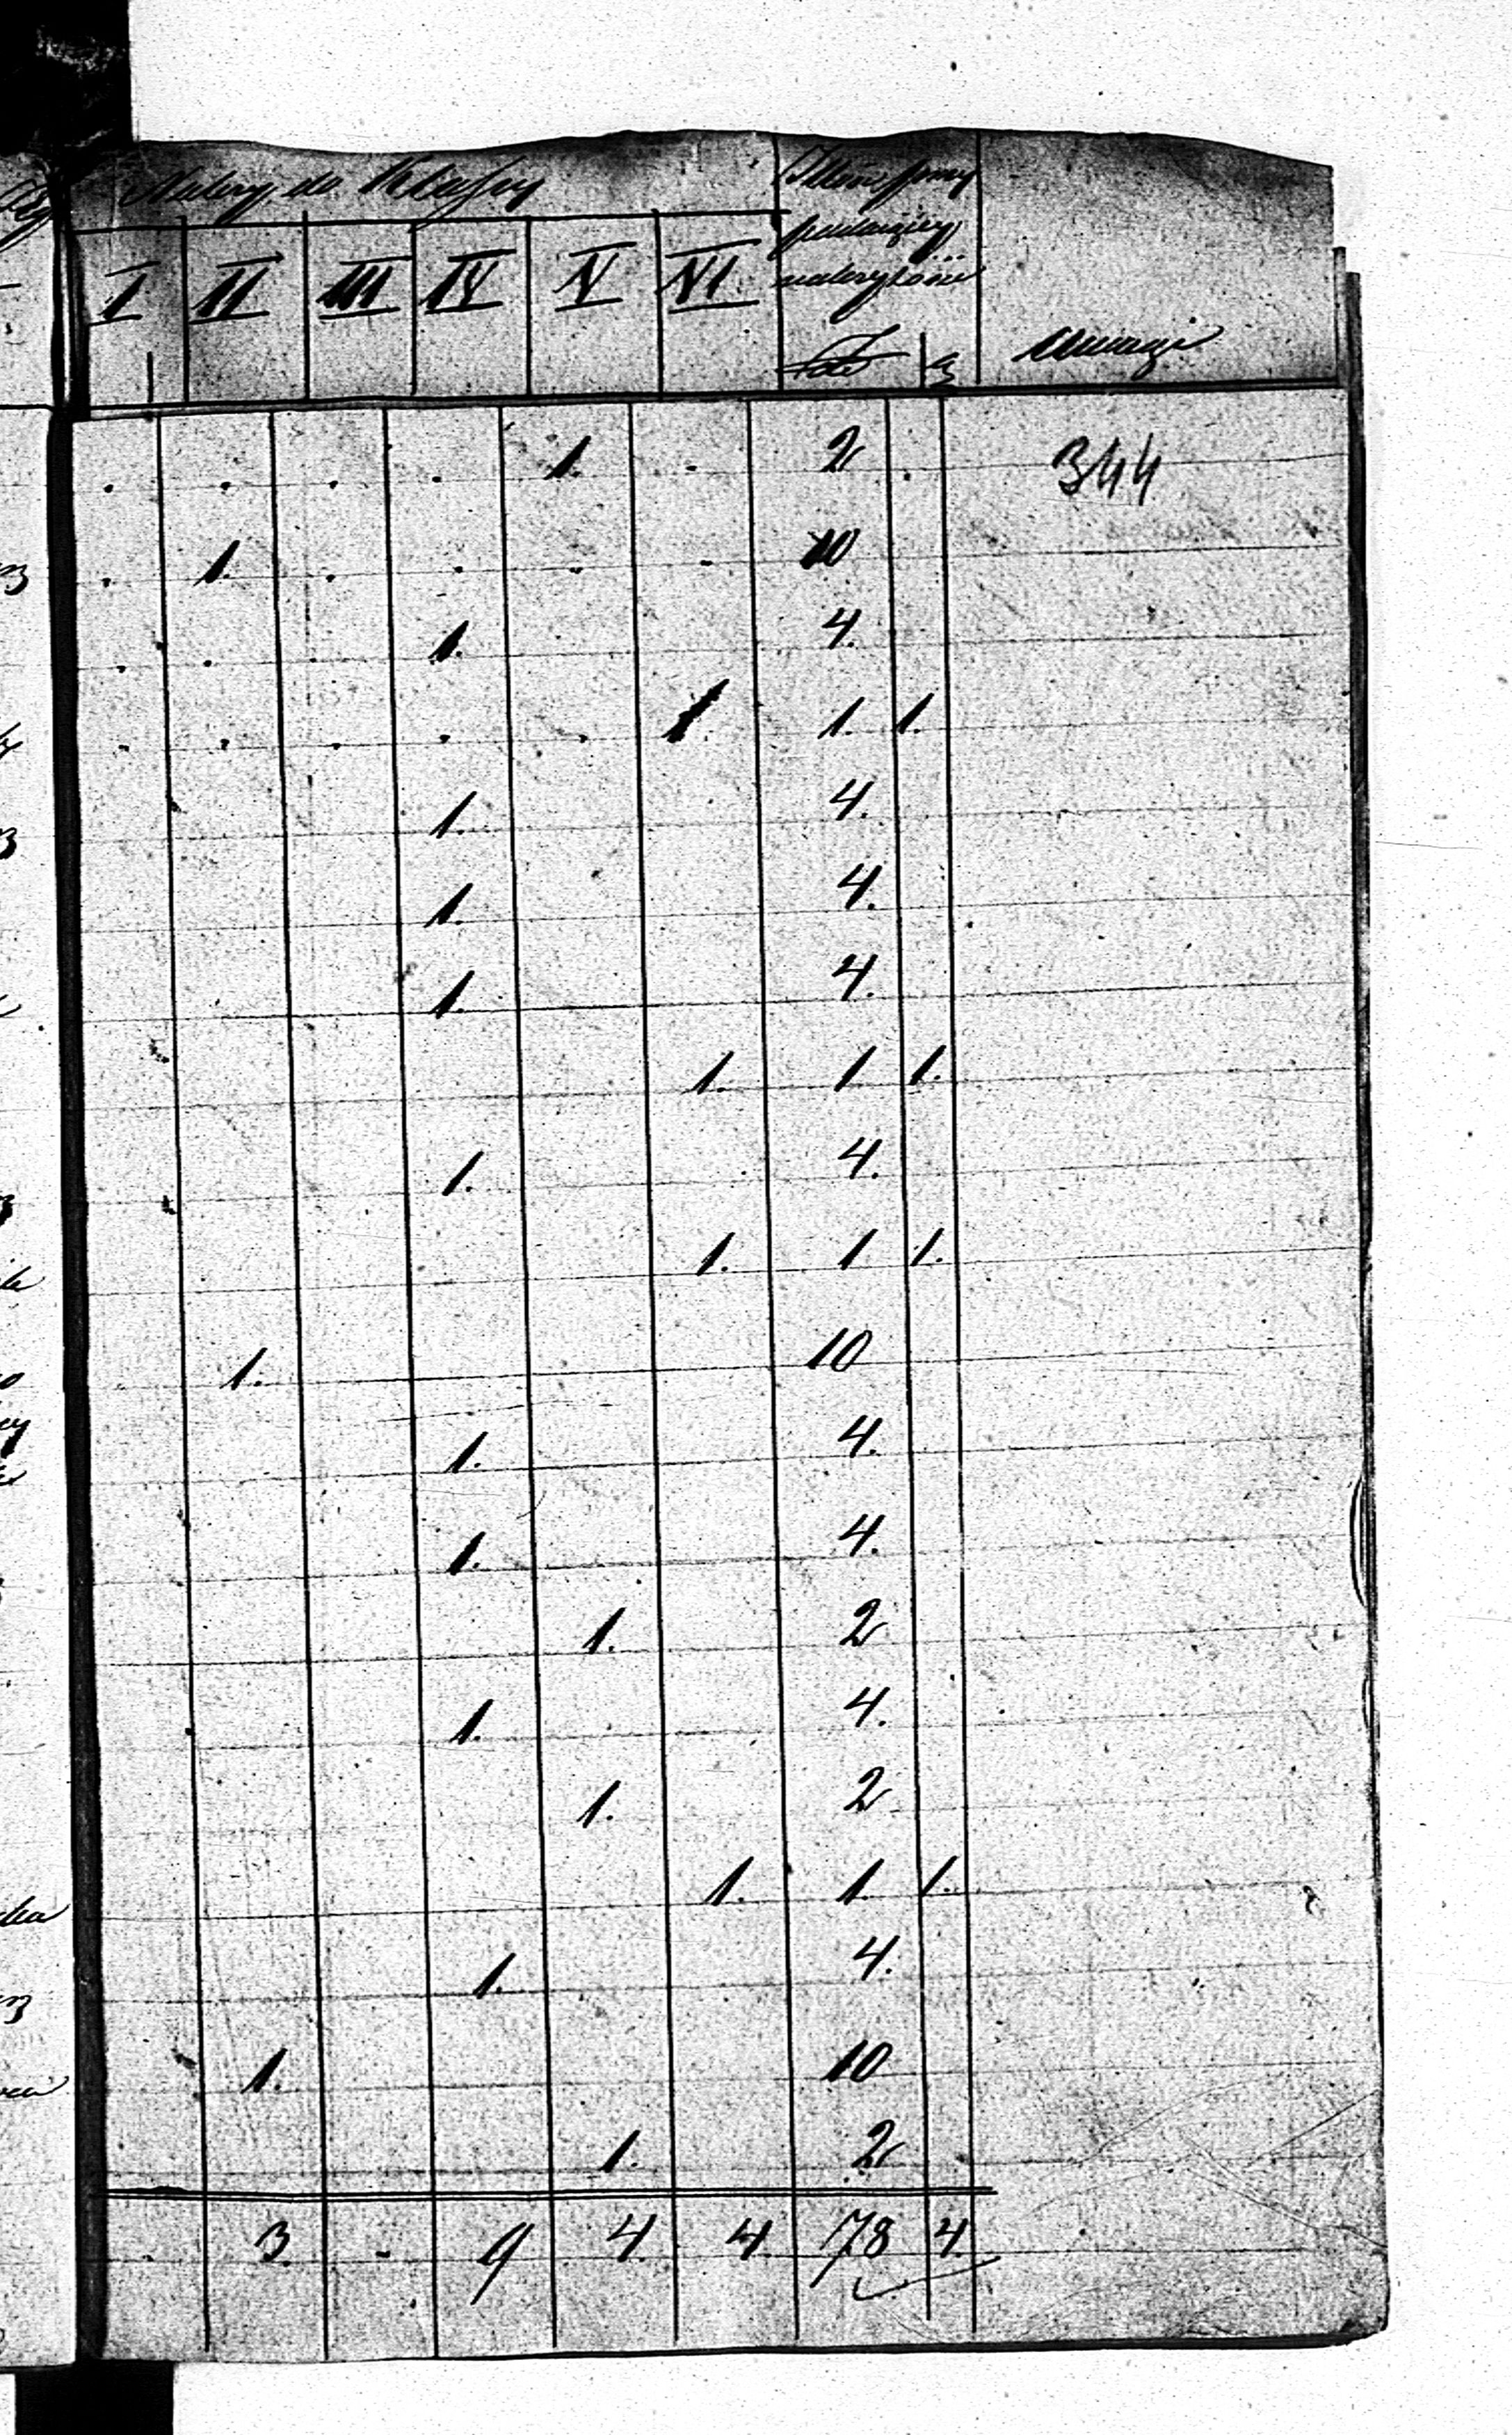 Należy do Klassy
przy
I II III IV V VI
należytości
Złp g Uwagi
. . . . 1. . 2 . 344
. 1. . . . . 10
. . . 1. 4.
. . . . . 1. 1. 1.
1. 4.
1. 4.
1. 4.
1. 1 1.
1. 4.
1. 1 1.
1. 10
1. 4.
1. 4.
1. 2
1. 4.
1. 2
1. 1. 1.
1. 4.
1. 10
1. 2
. 3. - 9 4. 4. 78 4.